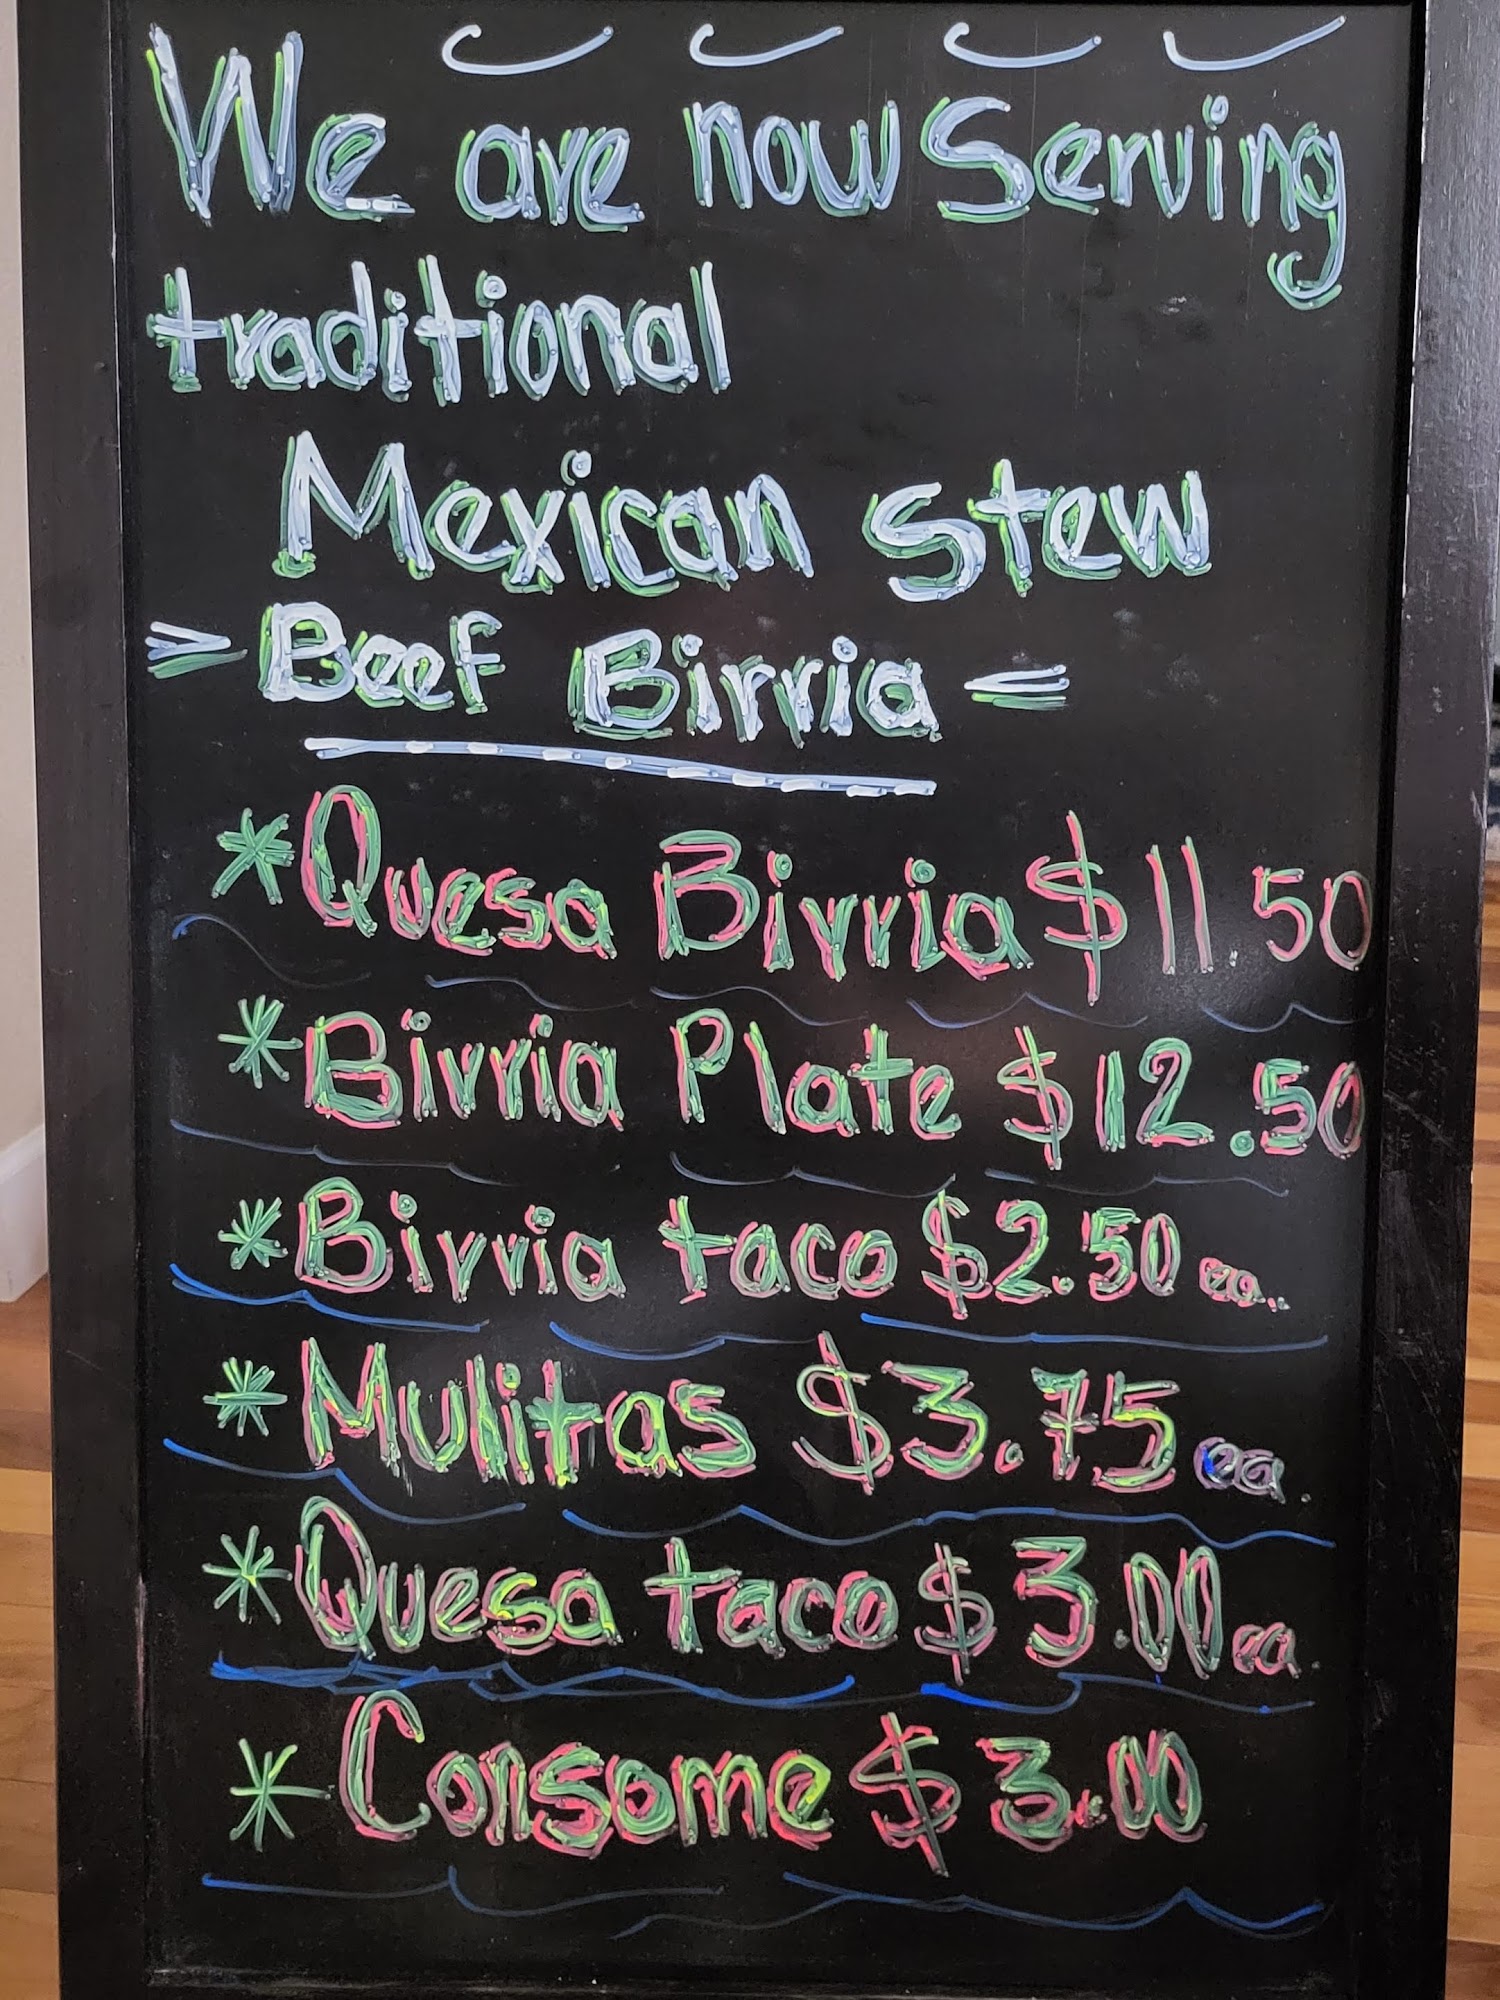 We are now Serving
traditional
Mexican stew
Beef Birria
*Quesa Birria $11.50
*Birria Plate $12.50
*Birria taco $2.50 ea.
*Mulitas $3.75 ea.
*Quesa taco $3.00 ea.
*Consome $3.00